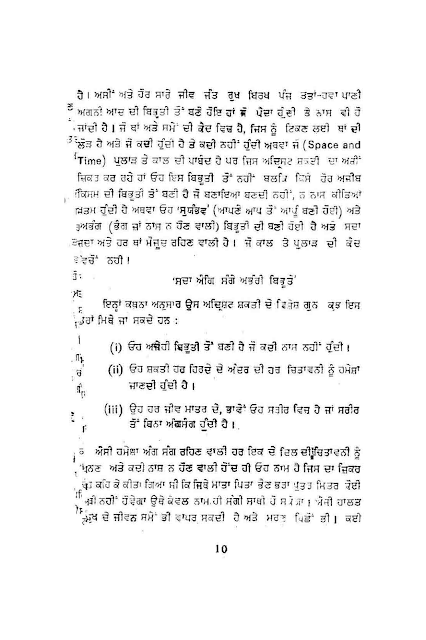 ਹੈ। ਅਸੀਂ ਅਤੇ ਹੋਰ ਸਾਰੇ ਜੀਵ ਜੰਤ ਰੁਖ ਬਿਰਖ ਪੰਜ ਤਤਾਂ-ਹਵਾ ਪਾਣੀ
ਅਗਨੀ ਆਦ ਦੀ ਬਿਭੂਤੀ ਤੋਂ ਬਣੇ ਹੋਏ ਹਾਂ ਜੋ ਪੈਦਾ ਹੁੰਦੀ ਤੇ ਨਾਸ ਵੀ ਹੋ
ਜਾਂਦੀ ਹੈ। ਜੋ ਥਾਂ ਅਤੇ ਸਮੇਂ ਦੀ ਕੈਦ ਵਿਚ ਹੈ, ਜਿਸ ਨੂੰ ਟਿਕਣ ਲਈ ਥਾਂ ਦੀ
ਲੋੜ ਹੈ ਅਤੇ ਜੋ ਕਦੀ ਹੁੰਦੀ ਹੈ ਤੇ ਕਦੀ ਨਹੀਂ ਹੁੰਦੀ ਅਥਵਾ ਜੋ (Space and
Time) ਪੁਲਾੜ ਤੇ ਕਾਲ ਦੀ ਪਾਬੰਦ ਹੈ ਪਰ ਜਿਸ ਅਦ੍ਰਿਸ਼ਟ ਸ਼ਕਤੀ ਦਾ ਅਸੀਂ
ਜ਼ਿਕਰ ਕਰ ਰਹੇ ਹਾਂ ਓਹ ਇਸ ਬਿਭੂਤੀ ਤੋਂ ਨਹੀਂ ਬਲਕਿ ਕਿਸੇ ਹੋਰ ਅਜੀਬ
ਕਿਸਮ ਦੀ ਬਿਭੂਤੀ ਤੋਂ ਬਣੀ ਹੈ ਜੋ ਬਣਾਇਆ ਬਣਦੀ ਨਹੀਂ, ਨ ਨਾਸ ਕੀਤਿਆਂ
ਖ਼ਤਮ ਹੁੰਦੀ ਹੈ ਅਥਵਾ ਓਹ 'ਸੁਯੰਭਵ' (ਆਪਣੇ ਆਪ ਤੋਂ ਆਪੂੰ ਬਣੀ ਹੋਈ) ਅਤੇ
ਅਭੰਗ (ਭੰਗ ਜਾਂ ਨਾਸ ਨ ਹੋਣ ਵਾਲੀ) ਬਿਭੂਤੀ ਦੀ ਬਣੀ ਹੋਈ ਹੈ ਅਤੇ ਸਦਾ
ਅਤੇ ਹਰ ਥਾਂ ਮੌਜੂਦ ਰਹਿਣ ਵਾਲੀ ਹੈ। ਜੋ ਕਾਲ ਤੇ ਪੁਲਾੜ ਦੀ ਕੈਦ
ਵਿਚੋਂ ਨਹੀ।
'ਸਦਾ ਅੰਗਿ ਸੰਗੇ ਅਭੰਗੀ ਬਿਭੂਤੇ'
ਇਨ੍ਹਾਂ ਕਥਨਾ ਅਨੁਸਾਰ ਉਸ ਅਦ੍ਰਿਸ਼ਟ ਸ਼ਕਤੀ ਦੇ ਵਿਸ਼ੇਸ਼ ਗੁਨ ਕੁਝ ਇਸ
ਤਰਾਂ ਮਿਥੇ ਜਾ ਸਕਦੇ ਹਨ :
(i) ਓਹ ਅਜੇਹੀ ਬਿਭੂਤੀ ਤੋਂ ਬਣੀ ਹੈ ਜੋ ਕਦੀ ਨਾਸ ਨਹੀਂ ਹੁੰਦੀ।
(ii) ਓਹ ਸ਼ਕਤੀ ਹਰ ਹਿਰਦੇ ਦੇ ਅੰਦਰ ਦੀ ਹਰ ਚਿਤਾਵਨੀ ਨੂੰ ਹਮੇਸ਼ਾਂ
ਜਾਣਦੀ ਹੁੰਦੀ ਹੈ।
(iii) ਉਹ ਹਰ ਜੀਵ ਮਾਤਰ ਦੇ, ਭਾਵੇਂ ਓਹ ਸਰੀਰ ਵਿਚ ਹੈ ਜਾਂ ਸਰੀਰ
ਤੋਂ ਬਿਨਾ ਅੰਗਸੰਗ ਹੁੰਦੀ ਹੈ।
ਐਸੀ ਹਮੇਸ਼ਾ ਅੰਗ ਸੰਗ ਰਹਿਣ ਵਾਲੀ ਹਰ ਇਕ ਦੇ ਦਿਲ ਦੀ ਚਿਤਾਵਨੀ ਨੂੰ
ਅਤੇ ਕਦੀ ਨਾਸ਼ ਨ ਹੋਣ ਵਾਲੀ ਹੋਂਦ ਹੀ ਓਹ ਨਾਮ ਹੈ ਜਿਸ ਦਾ ਜ਼ਿਕਰ
ਕਹਿ ਕੇ ਕੀਤਾ ਗਿਆ ਸੀ ਕਿ ਜਿਥੇ ਮਾਤਾ ਪਿਤਾ ਭੈਣ ਭਰਾ ਪੁਤਰ ਮਿਤਰ ਕੋਈ
ਭੀ ਨਹੀਂ ਹੋਵੇਗਾ ਉਥੇ ਕੇਵਲ ਨਾਮ ਹੀ ਸੰਗੀ ਸਾਥੀ ਹੋ ਸਕੇਗਾ। ਐਸੀ ਹਾਲਤ
ਦੇ ਜੀਵਨ ਸਮੇਂ ਭੀ ਵਾਪਰ ਸਕਦੀ ਹੈ ਅਤੇ ਮਰਣ ਪਿਛੋਂ ਭੀ। ਕਈ
10